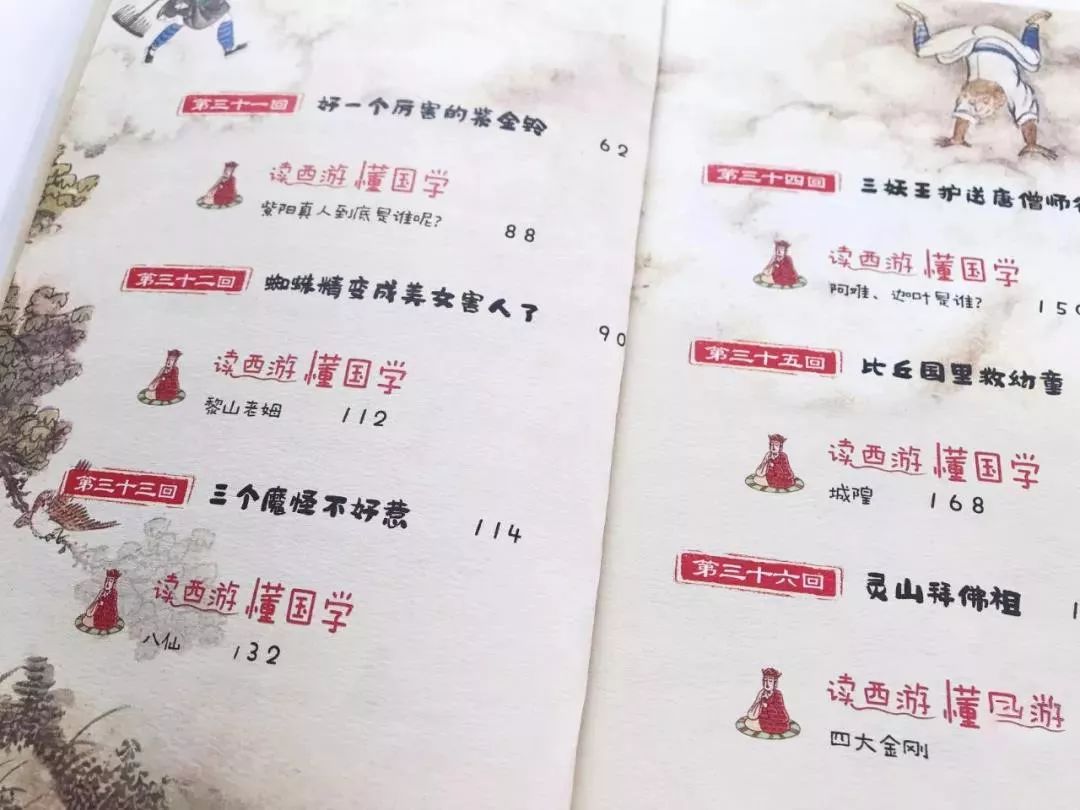 第三十一回 好一个厉害的紫金铃 62
读西游 懂国学
紫阳真人到底是谁呢? 88
第三十二回 蜘蛛情变成美女害人了 90
读西游 懂国学
黎山老姆 112
第三十三回 三个魔怪不好惹 114
读西游 懂国学
八仙 132
第三十四回 三妖王护送唐僧师
读西游 懂国学
阿难、迦叶是谁? 150
第三十五回 比丘国里救幼童
读西游 懂国学
城隍 168
第三十六回 灵山拜佛祖
读西游 懂游
四大金刚